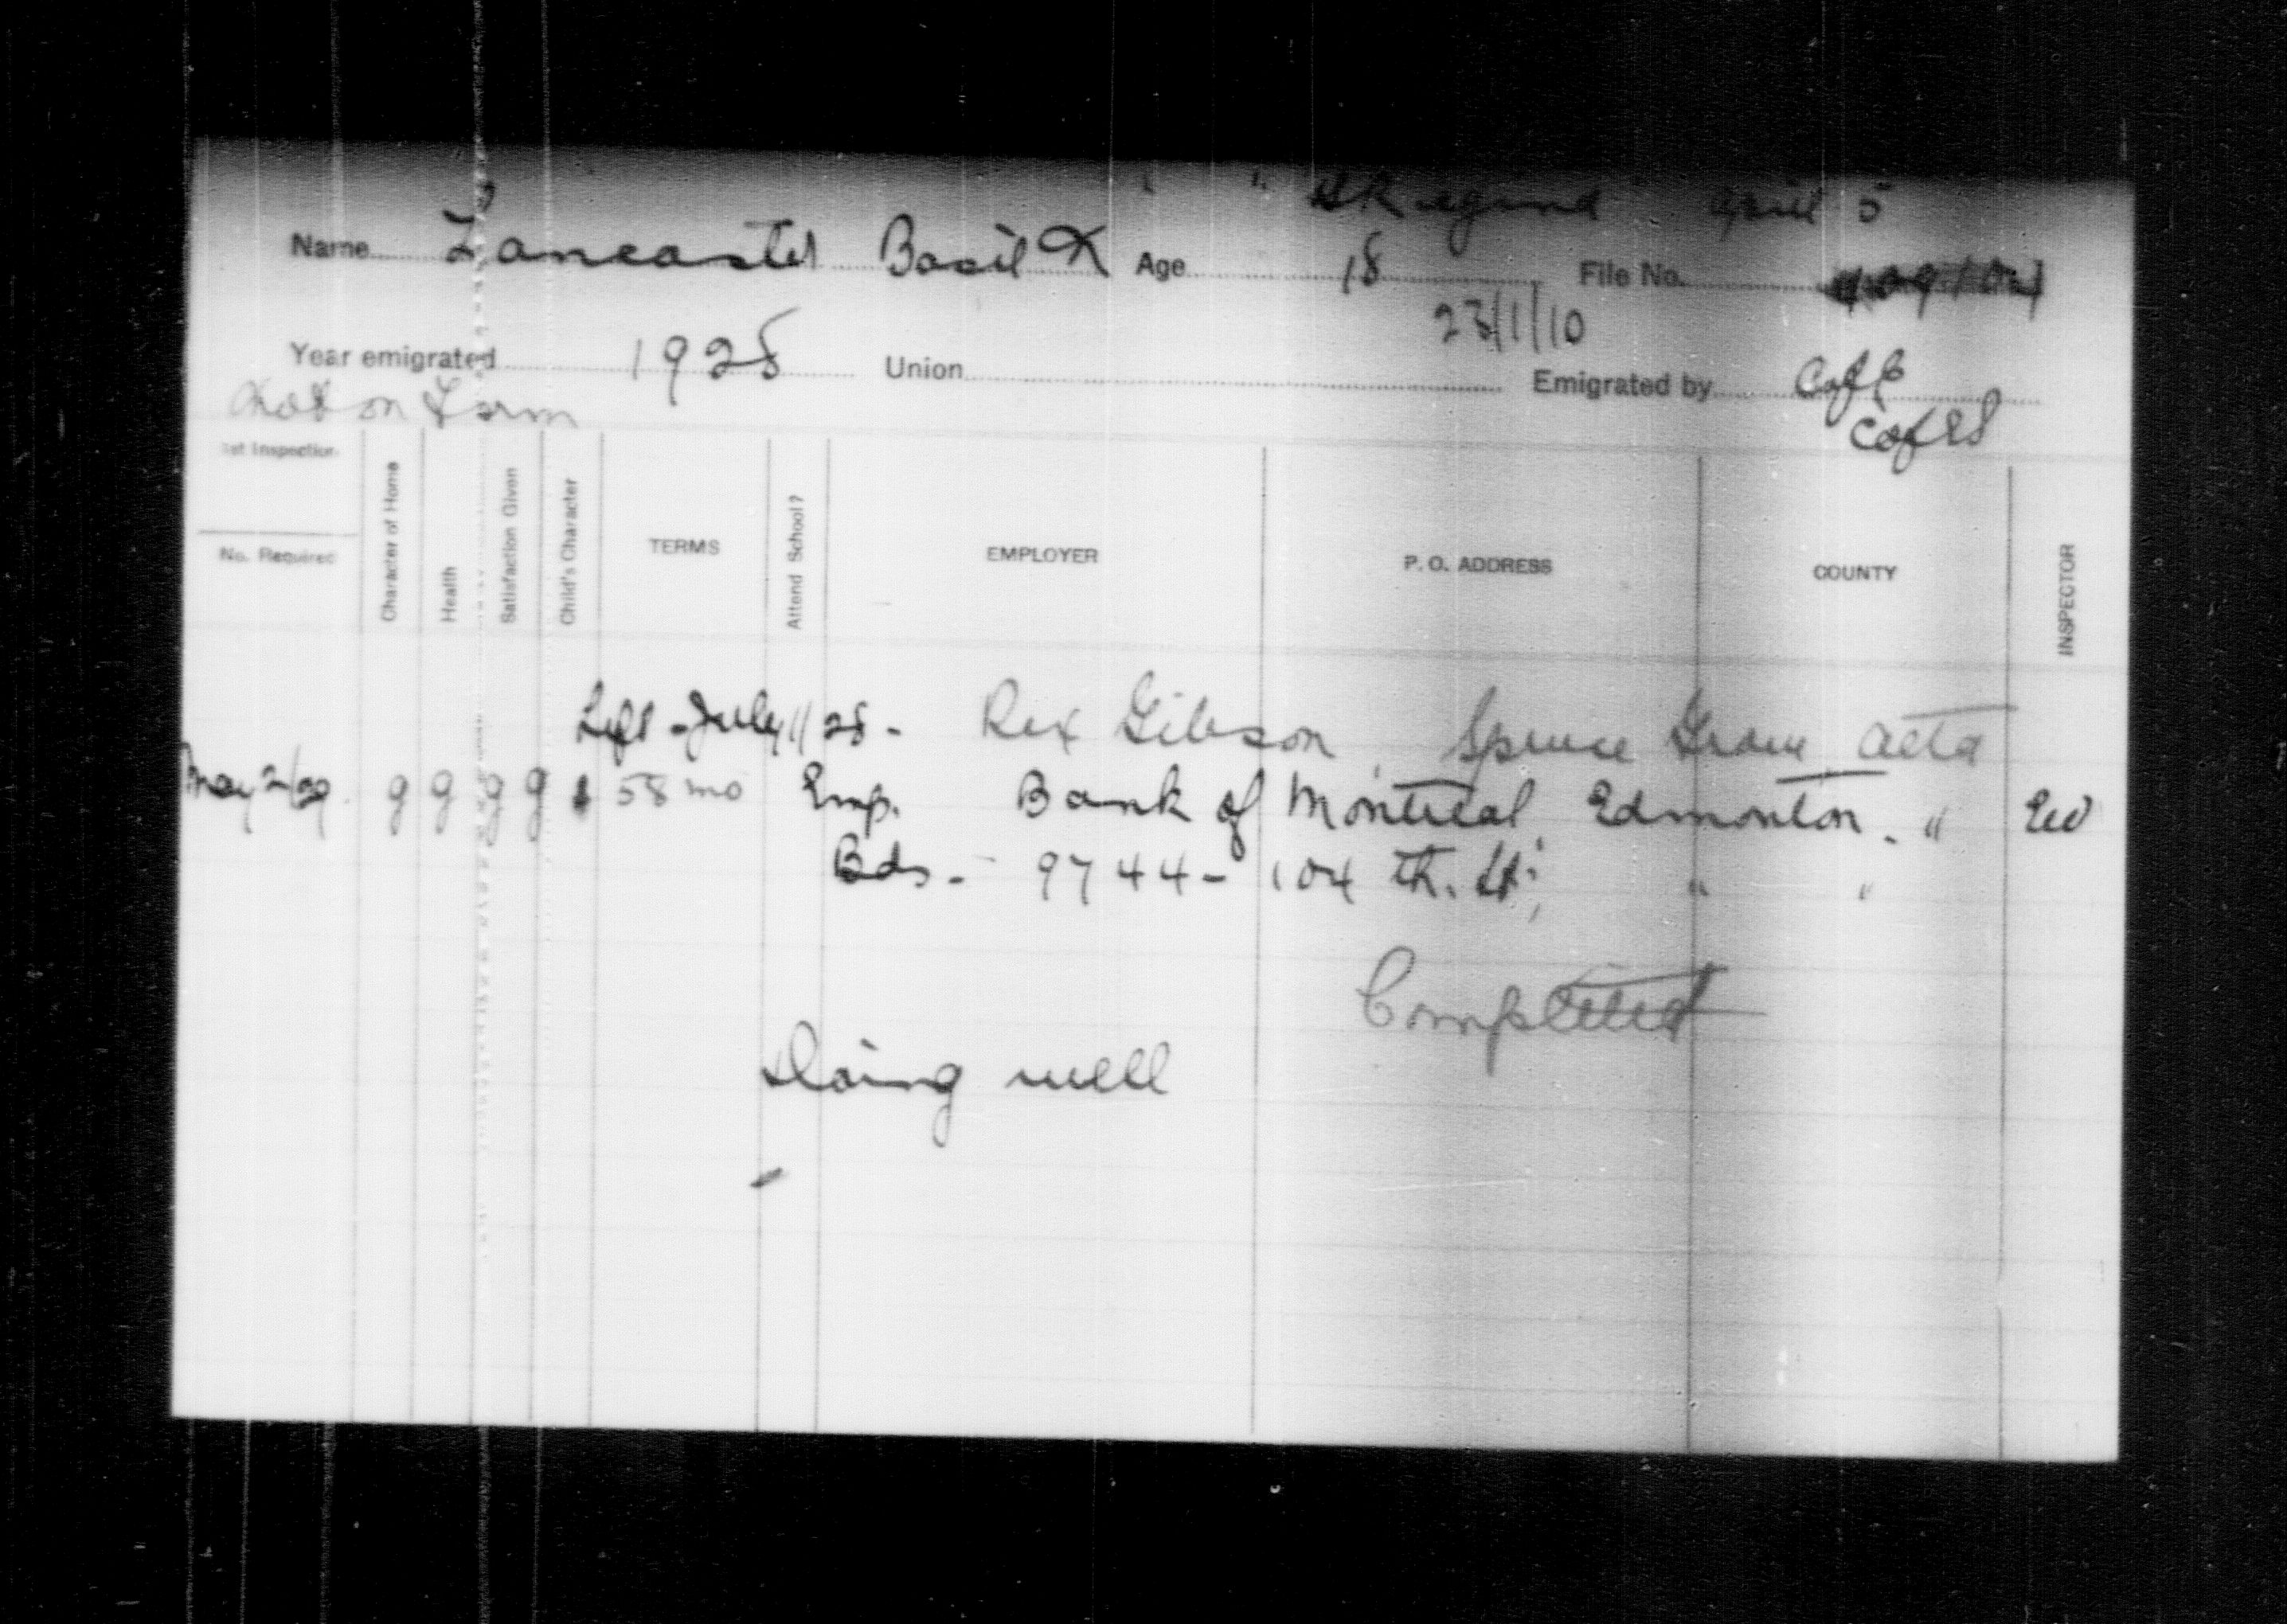 April 5
Name Lancaster Basil K Age 18 File No.
23/1/10
Year emigrated 1928 Union Emigrated by C of E
Not on Farm C of ES
1st Inspection
No. Required
Character of Home
Health
Satisfaction Given
Child's Character
TERMS
Attend School?
EMPLOYER
P. O. ADDRESS
COUNTY
INSPECTOR
Left - July 11 28 - Rex Gibson, Spruce Grove, Alta
May 2/29. g g g g $ 58 mo Emp. Bank of Montreal, Edmonton. " EW
Bds. - 9744 - 104 th. St; " "
Completed
Doing well